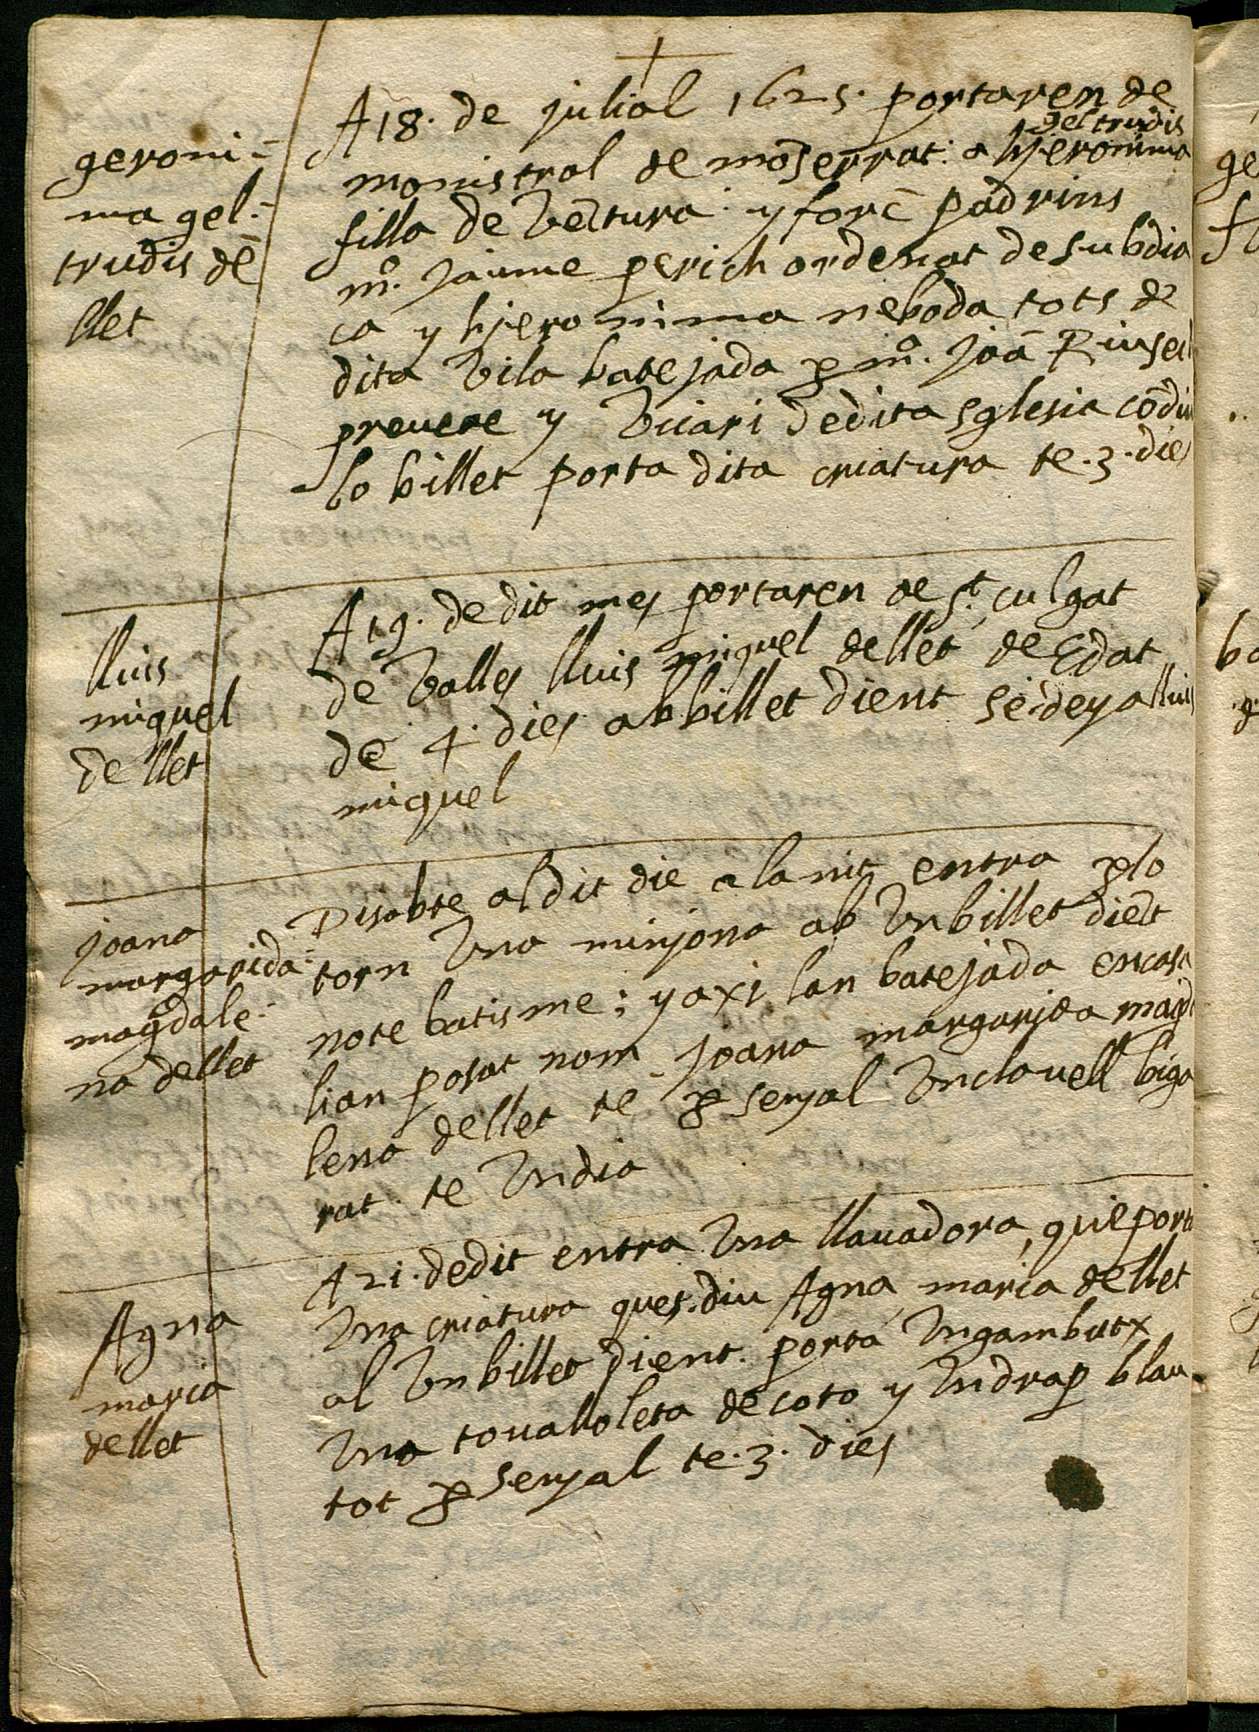 geroni-
ma gel-
trudis de
llet
A 18. de juliol 1625. portaren de
monistrol de moserrat: a hjeronima
geltrudis
filla de Vetura: y forē padrins
mº. Jaume perich ordenat de subdia
ca y hjeronima neboda tots de
dita Vila batejada p mº. Joā Riusec
prevere y Vicari de dita sglesia cōdiu
lo billet porta dita criatura te .3. dies
lluis
miquel
de llet
A 19. de dit mes portaren de St. culgat
de Valles lluis miquel dellet de Edat
de 4. dies ab billet dient se deya lluis
miquel
joana
margarida
magdale-
na dellet
Disabte al dit die a la nit entra plo
torn Una minjona ab Un billet diēt
no te batisme; y axi lan batejada encasa
lian posat nom Joana margarjda magda
lena dellet te p senyal Un clavell biga
rat. te Un dia
Agna
maria
dellet
A 21. de dit entra Una llavadora, que porta
Una criatura ques diu Agna maria dellet
al Un billet dient. porta Un gambutx
Una tovalloleta de coto y Un drap blau
tot p senyal te .3. dies